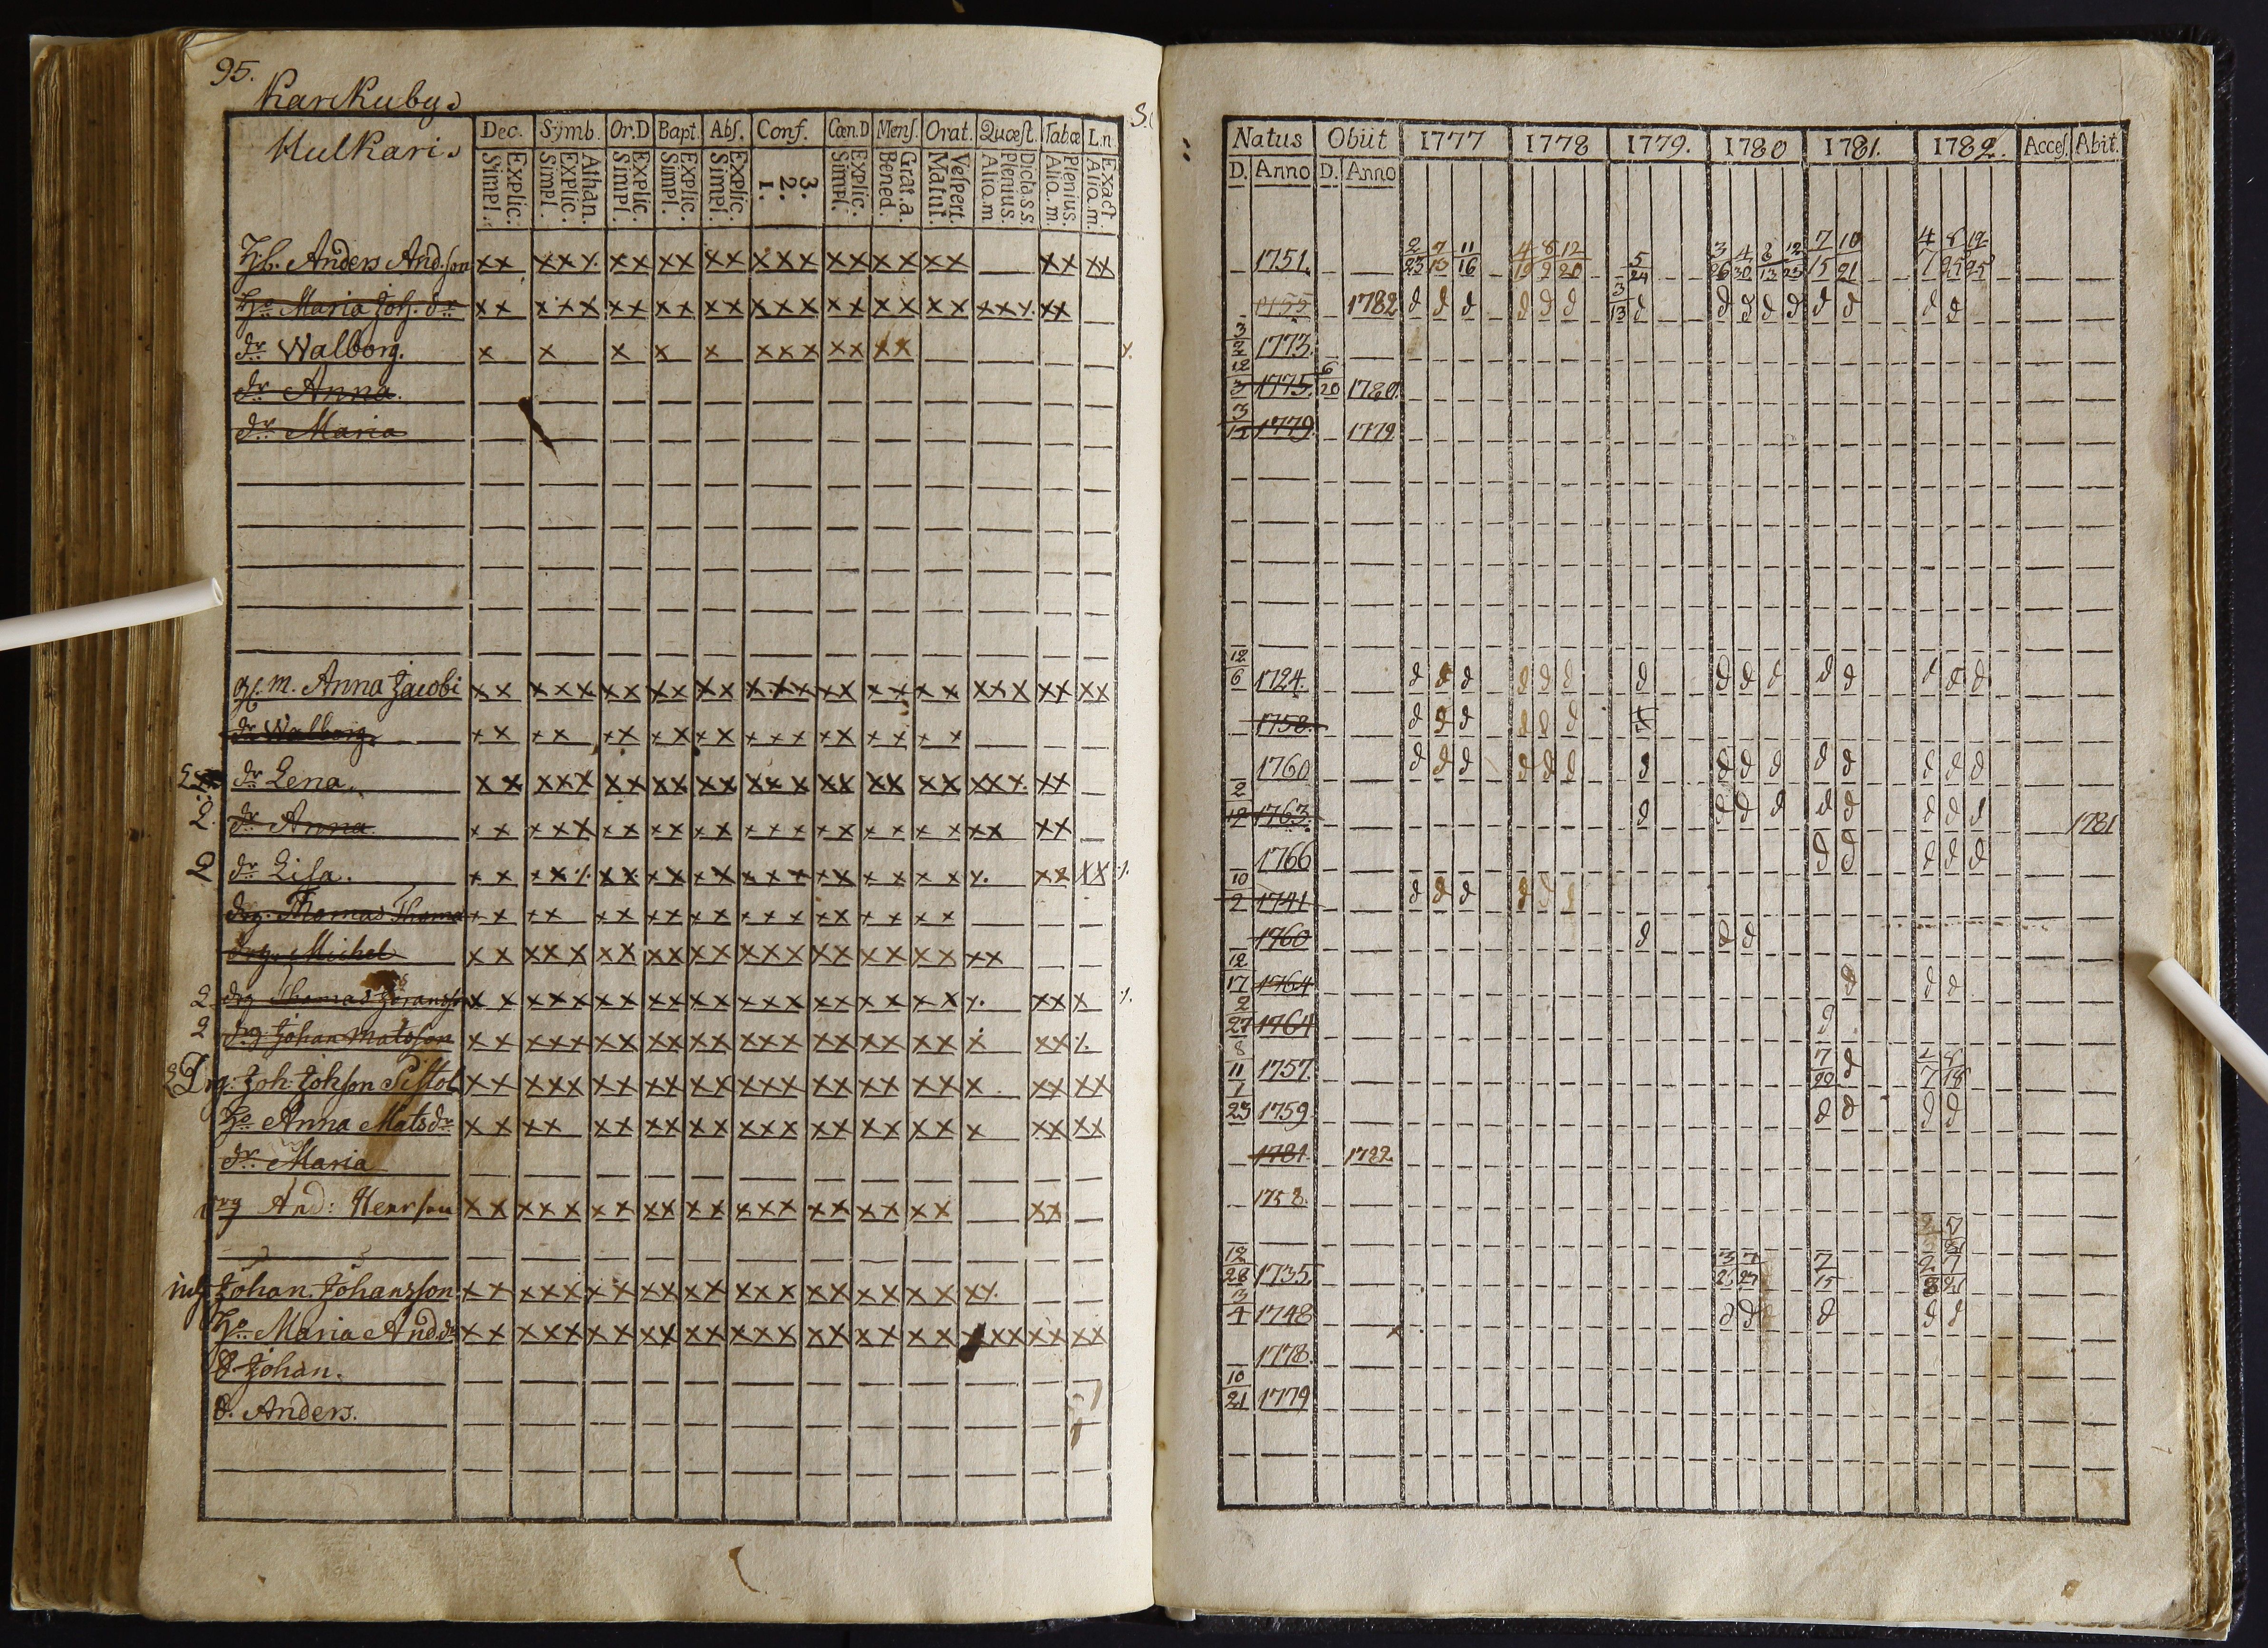 95.
Karkuby.
Hulkari.
Dec. Symb. Or.D Bapt. Abſ. Conf. Cœn.D Menſ. Orat. Quæſt. Tabæ L.n.
Simpl. Explic. Simpl. Explic. Athan. Simpl. Explic. Simpl. Explic. Simpl. Explic. 1. 2. 3. Simpl. Explic. Bened. Grat.a. Matut. Veſpert. Aliq.m Plenius. Dicta.s.s. Aliq.m. Plenius. Aliq.m. Exact.
Anders And.ſon xx xxx xx xx xx xxx xx xx xx xx xx
Maria Joh. dr xx xxx xx xx xx xxx xx xx xx xxx xx
dr Walborg. x x x x x xxx xx xx
dr Anna.
dr Maria
m. Anna Jacobi xx xxx xx xx xx xxx xx xx xx xxx xx xx
dr Walborg. xx xx xx xx xx xxx xx xx xx
dr Lena. xx xxx xx xx xx xxx xx xx xx xxx xx
2. dr Anna xx xxx xx xx xx xxx xx xx xx xx xx
2 dr Liſa. xx xx xx xx xx xxx xx xx xx xx xx
drg. Thomas Thoma xx xx xx xx xx xxx xx xx xx
drg. Michel xx xxx xx xx xx xxx xx xx xx xx
2 drg Thomas xx xxx xx xx xx xxx xx xx xx xx x
2 drg. Johan Matsſon xx xxx xx xx xx xxx xx xx xx x xx
2 Drg. Joh. Johſon Piſtol xx xxx xx xx xx xxx xx xx xx x xx xx
Anna Matsdr xx xx xx xx xx xxx xx xx xx x xx xx
dr Maria
drg And: Henrſon xx xxx xx xx xx xxx xx xx xx xx
inh Johan. Johansſon. xx xxx xx xx xx xxx xx xx xx
Maria And.dr xx xxx xx xx xx xxx xx xx xx xxx xx xx
Johan.
Anders.
Natus Obiit 1777 1778 1779. 1780 1781. 1782. Acceſ. Abit.
D. Anno D. Anno
1751. 2/23 7/13 11/16 4/19 8/9 12/20 5/24 3/26 4/30 8/13 12/25 7/15 10/21
1782 d d d d d d 3/13 d d d d d d d d d
3/2 1773.
12/3 1775. 6/20 1780.
3/12 1779. 1779
12/6 1724. d d d d d d d d d d d d d d d
1758. d d d d d d
1760 d d d d d d d d d d d d d d d
2/12 1763. d d d d d d d d d 1781
1766 d d d d d
10/2 1741 d d d d d d
1760 d d d
12/17 1764 d d d
2/27 1764 d
8/11 1757. 7/20 d
1/23 1759. d d d d
1781 1782.
1758.
12/28 1735. 7/15
3/4 1748 d d d d d
1778.
10/21 1779